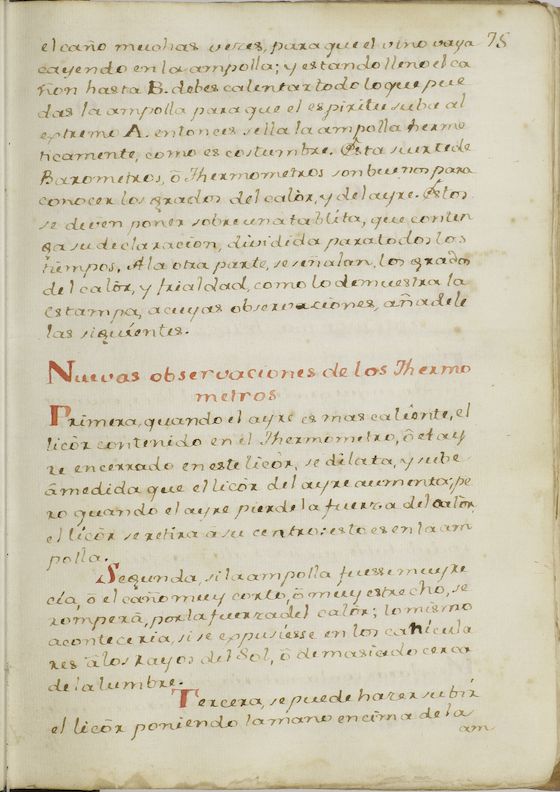 75
el caño muchas veces, para que el vino vaya
cayendo en la ampolla; y estando lleno el ca
ñon hasta B. debes calentar todo lo que pue
das la ampolla para que el espiritu suba al
extremo A. entonces sella la ampolla herme
ticamente, como es costumbre. Esta suerte de
Barometros, ò Thermometros son buenos para
conocer los grados del calòr, y del ayre. Estos
se deven poner sobre una tablita, que conten
ga su declaracion, dividida para todos los
tiempos. A la otra parte, se señalan, los grados
del calòr, y frialdad, como lo demuestra la
estampa, a cuyas observaciones, añadele
las siguientes.
Nuevas observaciones de los Thermo
metros
Primera, quando el ayre es mas caliente, el
licòr contenido en el Thermometro, ò el ay
re encerrado en este licòr, se dilata, y sube
à medida que el licòr del ayre aumenta; pe
ro quando el ayre pierde la fuerza del calòr,
el licòr se retira à su centro: esto es en la am
polla.
Segunda, si la ampolla fuesse muy re
cia, ò el caño muy corto, ò muy estrecho, se
romperà, por la fuerza del calòr; lo mismo
aconteceria, si se expusiesse en los canicula
res à los rayos del Sol, ò demasiado cerca
de la lumbre.
Tercera, se puede hazer subir
el licòr poniendo la mano encima de la
am